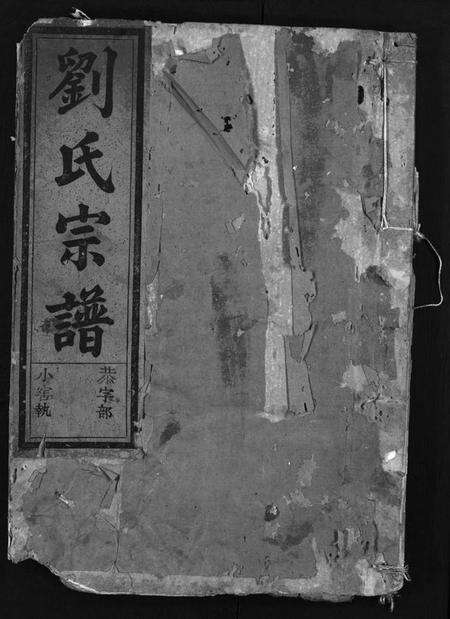 劉氏宗譜
恭字部
小宗執